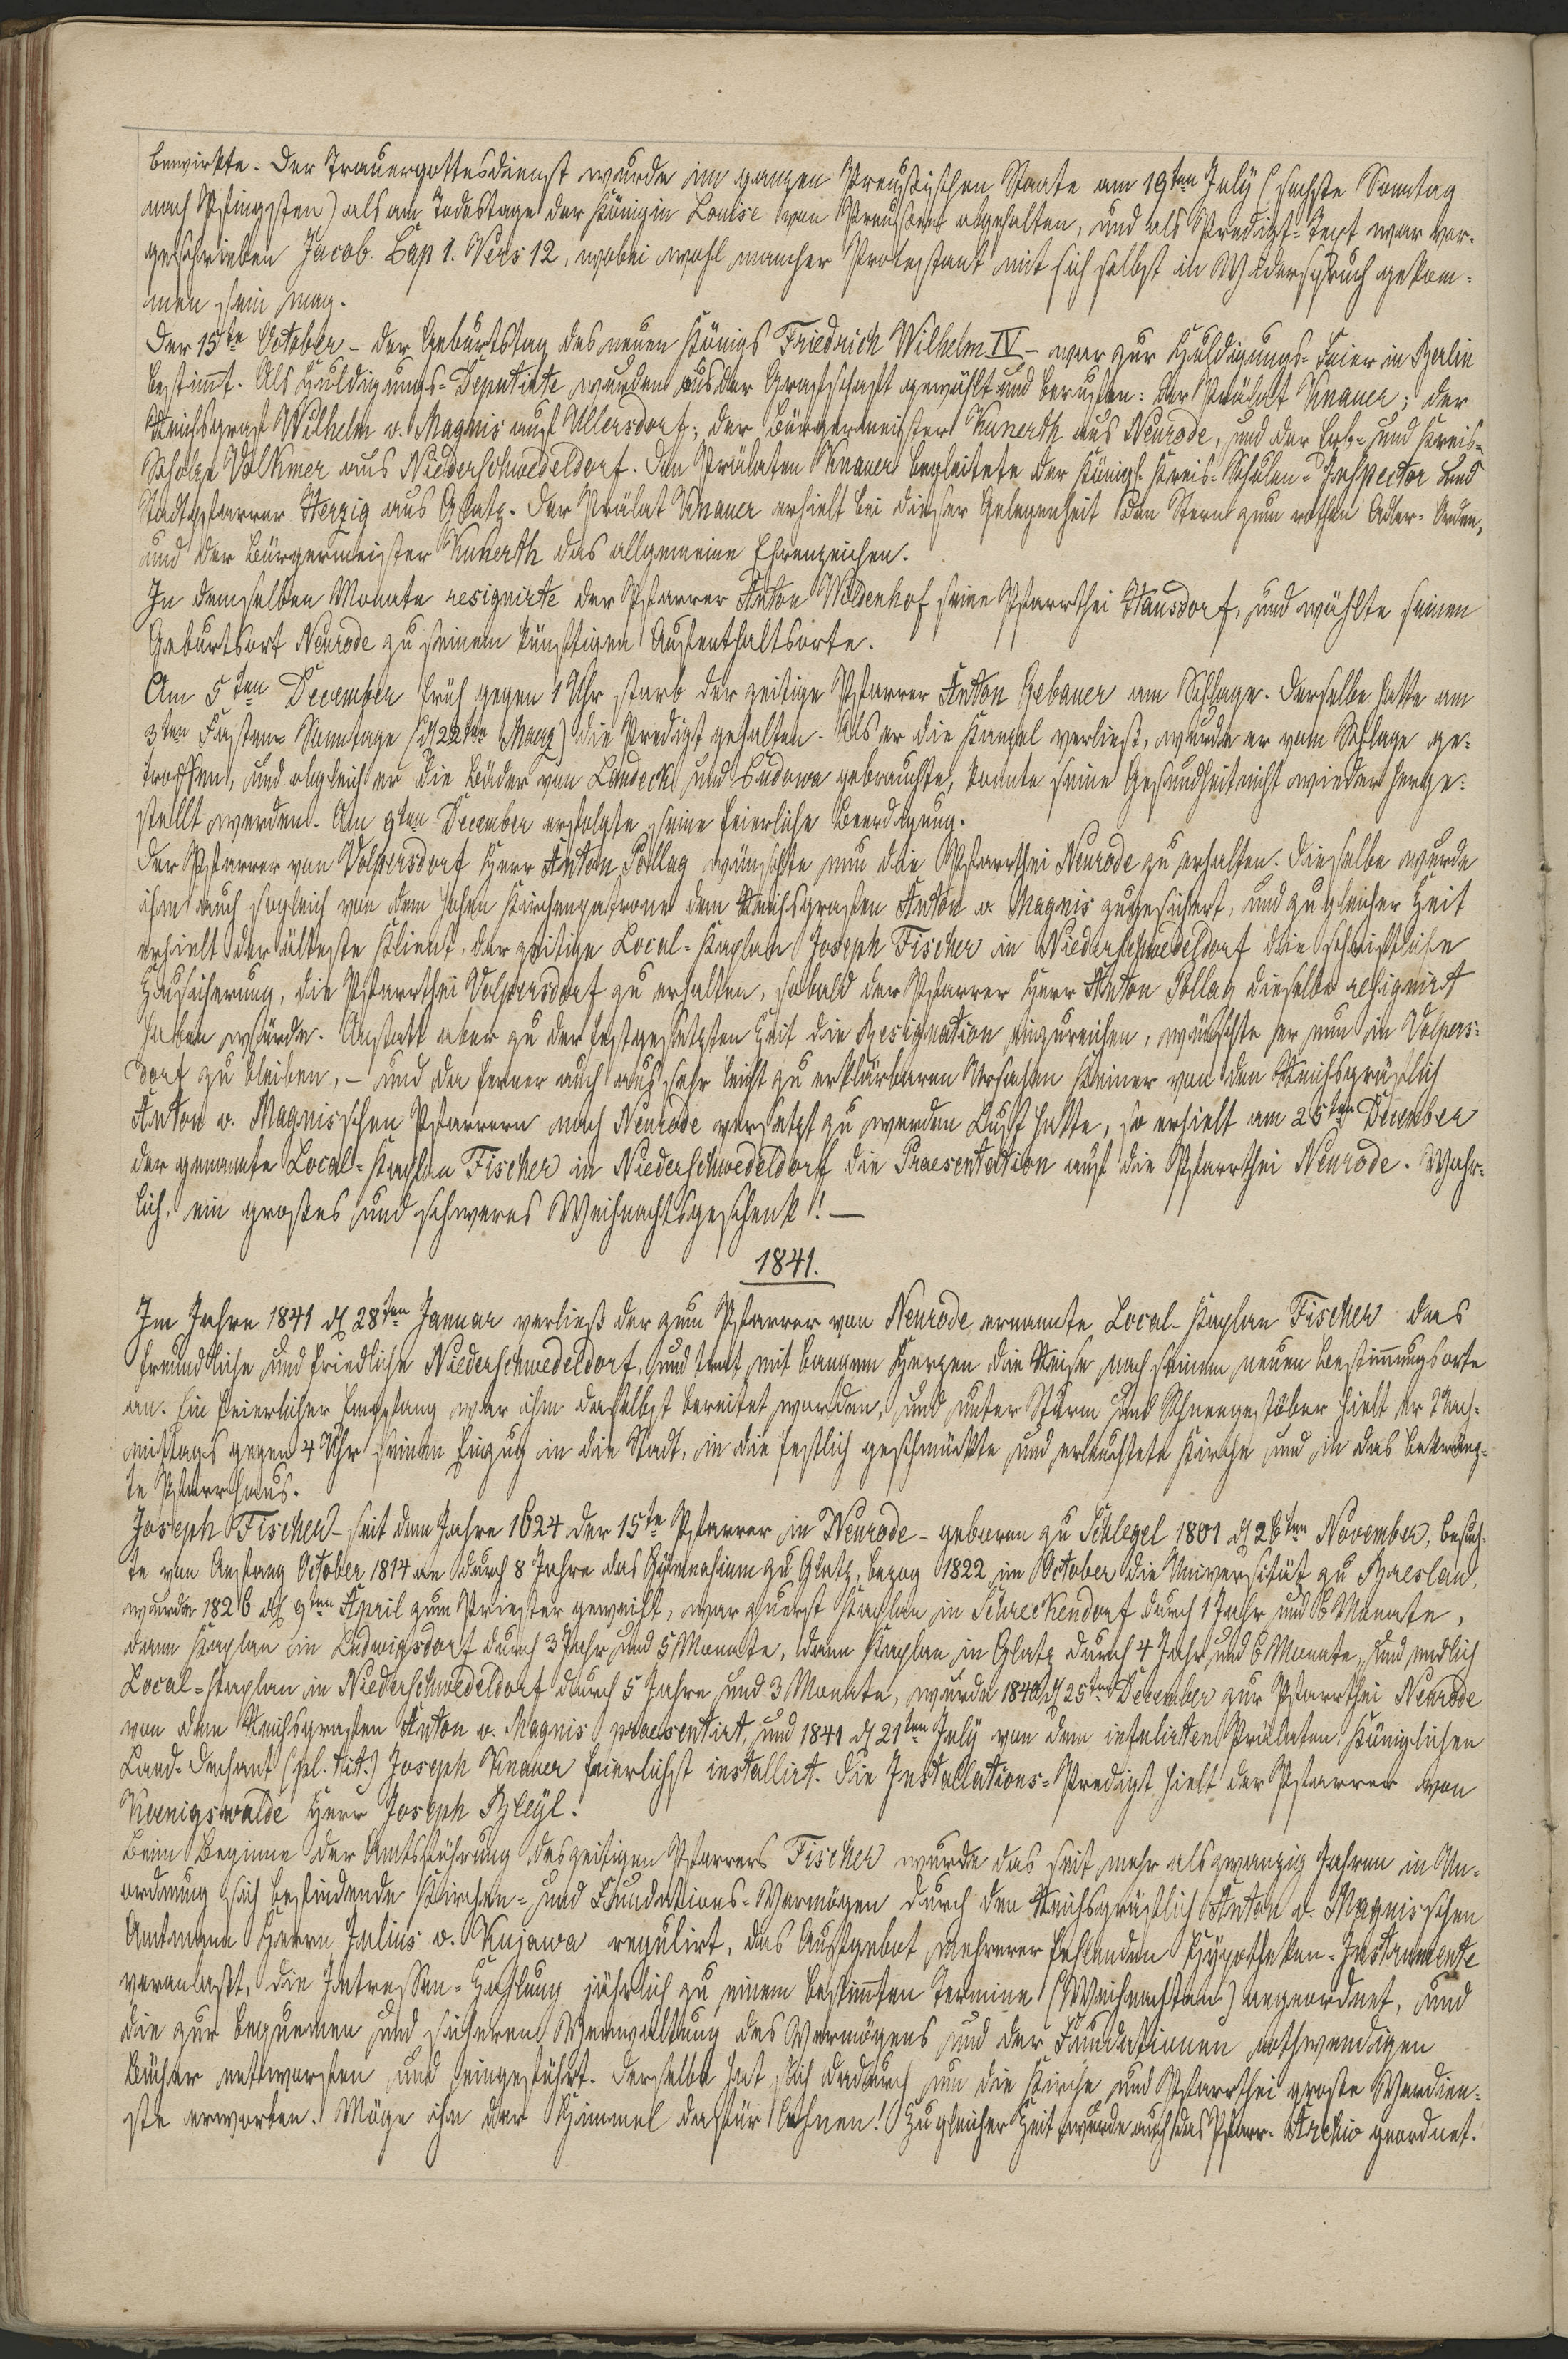 bewirkte. Der Trauergottesdienst wurde im ganzen Preußischen Staate am 19ten July (sechste Sonntag
nach Pfingsten) als am Todestage der Königin Louise von Preußen abgehalten, und als Predigt-Text war vor-
geschrieben Jacob. Cap 1. Vers 12, wobei wohl mancher Protestant mit sich selbst in Widerspruch gekom-
men sein mag.
Der 15te October - der Geburtstag des neuen Königs Friedrich Wilhelm IV - war zur Huldigungs-Feier in Berlin
bestimt. Als Huldigungs-Deputirte wurden aus der Grafschaft gewählt und berufen: der Prälat Knauer; der
Reichsgraf Wilhelm v. Magnis auf Ullersdorf; der Bürgermeister Kunerth aus Neurode, und der Erb- und Kreis-
Scholze Volkmer aus Niederschwedeldorf. Den Prälaten Knauer begleitete der Königl. Kreis-Schulen-Inspector und
Stadtpfarrer Herzig aus Glatz. Der Prälat Knauer erhielt bei dieser Gelegenheit den Stern zum rothen Adler-Orden,
und der Bürgermeister Kunerth das allgemeine Ehrenzeichen.
In demselben Monate resignirte der Pfarrer Anton Wildenhof seine Pfarrthei Hausdorf, und wählte seinen
Geburtsort Neurode zu seinem künftigen Aufenthaltsorte.
Am 5ten December früh gegen 1 Uhr starb der zeitige Pfarrer Anton Gebauer am Schlage. Derselbe hatte am
3ten Fasten-Sonntage (d 22ten Merz) die Predigt gehalten. Als er die Kanzel verließ, wurde er vom Schlage ge-
troffen, und obgleich er die Bäder von Landeck und Cudowa gebrauchte, konnte seine Gesundheit nicht wieder herge-
stellt werden. Am 9ten December erfolgte seine feierliche Beerdigung.
Der Pfarrer von Volpersdorf Herr Anton Pollag wünschte nun die Pfarrthei Neurode zu erhalten. Dieselbe wurde
ihm auch sogleich von dem hohen Kirchenpatrone dem Reichsgrafen Anton v. Magnis zugesichert, und zu gleicher Zeit
erhielt der älteste Klient, der zeitige Local-Kaplan Joseph Fischer in Niederschwedeldorf die schriftliche
Zusicherung, die Pfarrthei Volpersdorf zu erhalten, sobald der Pfarrer Herr Anton Pollag dieselbe resignirt
haben würde. Anstatt aber zu der festgesetzten Zeit die Resignation einzureichen, wünschte er nun in Volpers-
dorf zu bleiben, - und da ferner auch aus sehr leicht zu erklärbaren Ursachen keiner von den Reichsgräflich
Anton v. Magnisschen Pfarrern nach Neurode versetzt zu werden Lust hatte, so erhielt am 25ten December
der genannte Local-Kaplan Fischer in Niederschwedeldorf die Praesentation auf die Pfarrthei Neurode. Wahr-
lich, ein großes und schweres Weihnachtsgeschenk! -
1841.
Im Jahre 1841 d 28ten Januar verließ der zum Pfarrer von Neurode ernannte Local-Kaplan Fischer das
freundliche und friedliche Niederschwedeldorf, und trat mit bangem Herzen die Reise nach seinem neuen Bestimungsorte
an. Ein feierlicher Empfang war ihm daselbst bereitet worden, und unter Sturm und Schneegestöber hielt er Nach-
mittags gegen 4 Uhr seinen Einzug in die Stadt, in die festlich geschmückte und erleuchtete Kirche und in das bekränz-
te Pfarrhaus.
Joseph Fischer - seit dem Jahre 1624 der 15te Pfarrer in Neurode - geboren zu Schlegel 1801 d 26ten November, besuch-
te von Anfang October 1814 an durch 8 Jahre das Gymnasium zu Glatz, bezog 1822 im October die Universität zu Breslau,
wurde 1826 d 9ten April zum Priester geweiht, war zuerst Kaplan in Schreckendorf durch 1 Jahr und 6 Monate,
dann Kaplan in Ludwigsdorf durch 3 Jahr und 5 Monate, dann Kaplan in Glatz durch 4 Jahr und 6 Monate, und endlich
Local-Kaplan in Niederschwedeldorf durch 5 Jahre und 3 Monate, wurde 1840 d 25ten December zur Pfarrthei Neurode
von dem Reichsgrafen Anton v. Magnis praesentirt, und 1841 d 21ten July von dem infulirten Prälaten, Königlichen
Land-Dechant (pl. tit.) Joseph Knauer feierlichst installirt. Die Installations-Predigt hielt der Pfarrer von
Koenigswalde Herr Joseph Bleyl.
Beim Beginne der Amtsführung des zeitigen Pfarrers Fischer wurde das seit mehr als zwanzig Jahren in Un-
ordnung sich befindende Kirchen- und Fundations-Vermögen durch den Reichsgräflich Anton v. Magnisschen
Amtmann Herrn Julius v. Kujawa regulirt, das Aufgebot mehrerer fehlenden Hypotheken-Instrumente
veranlaßt, die Intressen-Zahlung jährlich zu einem bestimten Termine (Weihnachten) angeordnet, und
die zur bequemen und sicheren Verwaltung des Vermögens und der Fundationen nothwendigen
Bücher entworfen und eingeführt. Derselbe hat sich dadurch um die Kirche und Pfarrthei große Verdien-
ste erworben. Möge ihn der Himmel dafür lohnen! Zu gleicher Zeit wurde auch das Pfarr-Archiv geordnet.